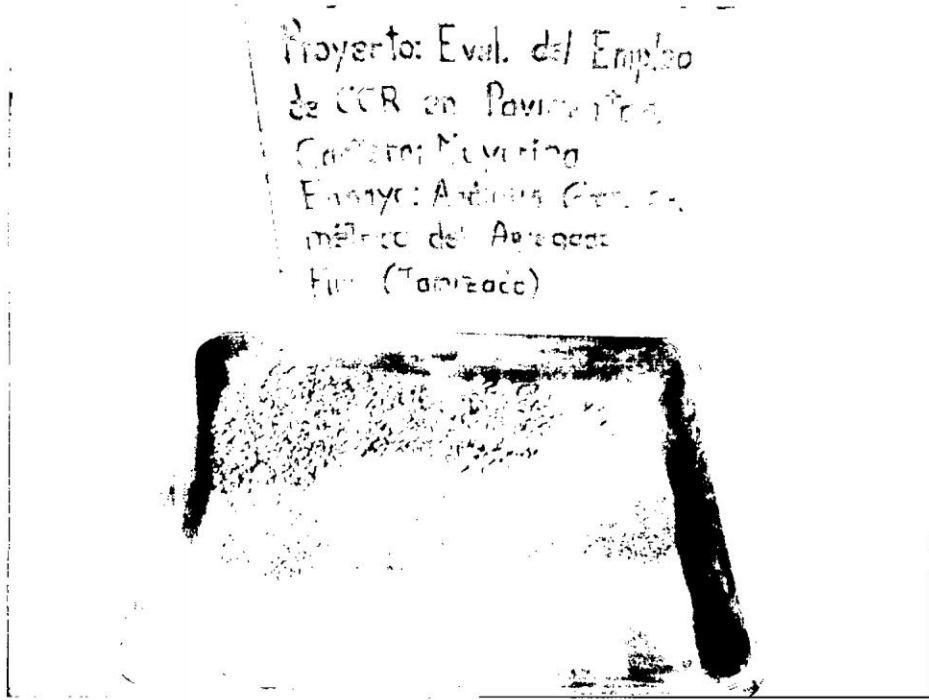 Proyecto: Eval. del Empleo
de CCR en Pavimentos
Cantera:
Ensayo: Análisis Granulo-
métrico del Agregado
Fino (Tamizado)